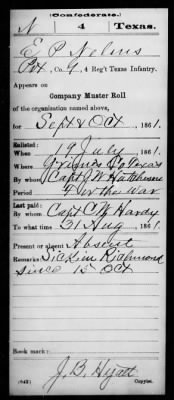 (Confederate.)
N 4 Texas.
E P Nelms
Pvt, Co. G, 4 Reg't Texas Infantry.
Appears on
Company Muster Roll
of the organization named above,
for Sept & Oct, 1861.
Enlisted:
When 19 July, 1861.
Where Grimes Co Texas
By whom Capt J W Hutcheson
Period For the War
Last paid:
By whom Capt C W Hardy
To what time 31 Aug, 1861.
Present or absent Absent
Remarks: Sick in Richmond
since 15 Oct
Book mark:
J. B. Hyatt
(642) Copyist.